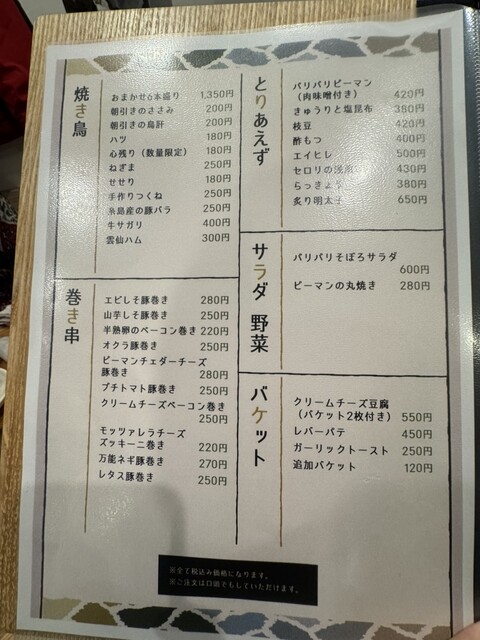 焼き鳥
おまかせ6本盛り 1,350円
朝引きのささみ 200円
朝引きの鳥肝 200円
ハツ 180円
心残り（数量限定） 180円
ねぎま 250円
せせり 180円
手作りつくね 250円
糸島産の豚バラ 250円
牛サガリ 400円
雲仙ハム 300円
巻き串
エビしそ豚巻き 280円
山芋しそ豚巻き 250円
半熟卵のベーコン巻き 220円
オクラ豚巻き 250円
ピーマンチェダーチーズ
豚巻き 280円
プチトマト豚巻き 250円
クリームチーズベーコン巻き
250円
モッツァレラチーズ
ズッキーニ巻き 220円
万能ネギ豚巻き 270円
レタス豚巻き 250円
とりあえず
パリパリピーマン
（肉味噌付き） 420円
きゅうりと塩昆布 380円
枝豆 420円
酢もつ 400円
エイヒレ 500円
セロリの浅漬け 430円
らっきょう 380円
炙り明太子 650円
サラダ 野菜
パリパリそぼろサラダ
600円
ピーマンの丸焼き 280円
バケット
クリームチーズ豆腐
（バケット2枚付き） 550円
レバーパテ 450円
ガーリックトースト 250円
追加バケット 120円
※全て税込み価格になります。
※ご注文は口頭でもしていただけます。